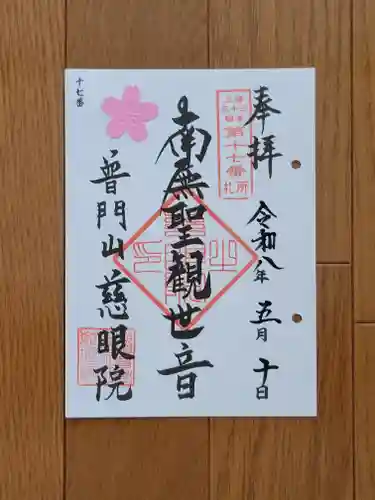 奉拝
令和八年 五月 十日
第十七番
札所
南無聖観世音
普門山慈眼院
十七番